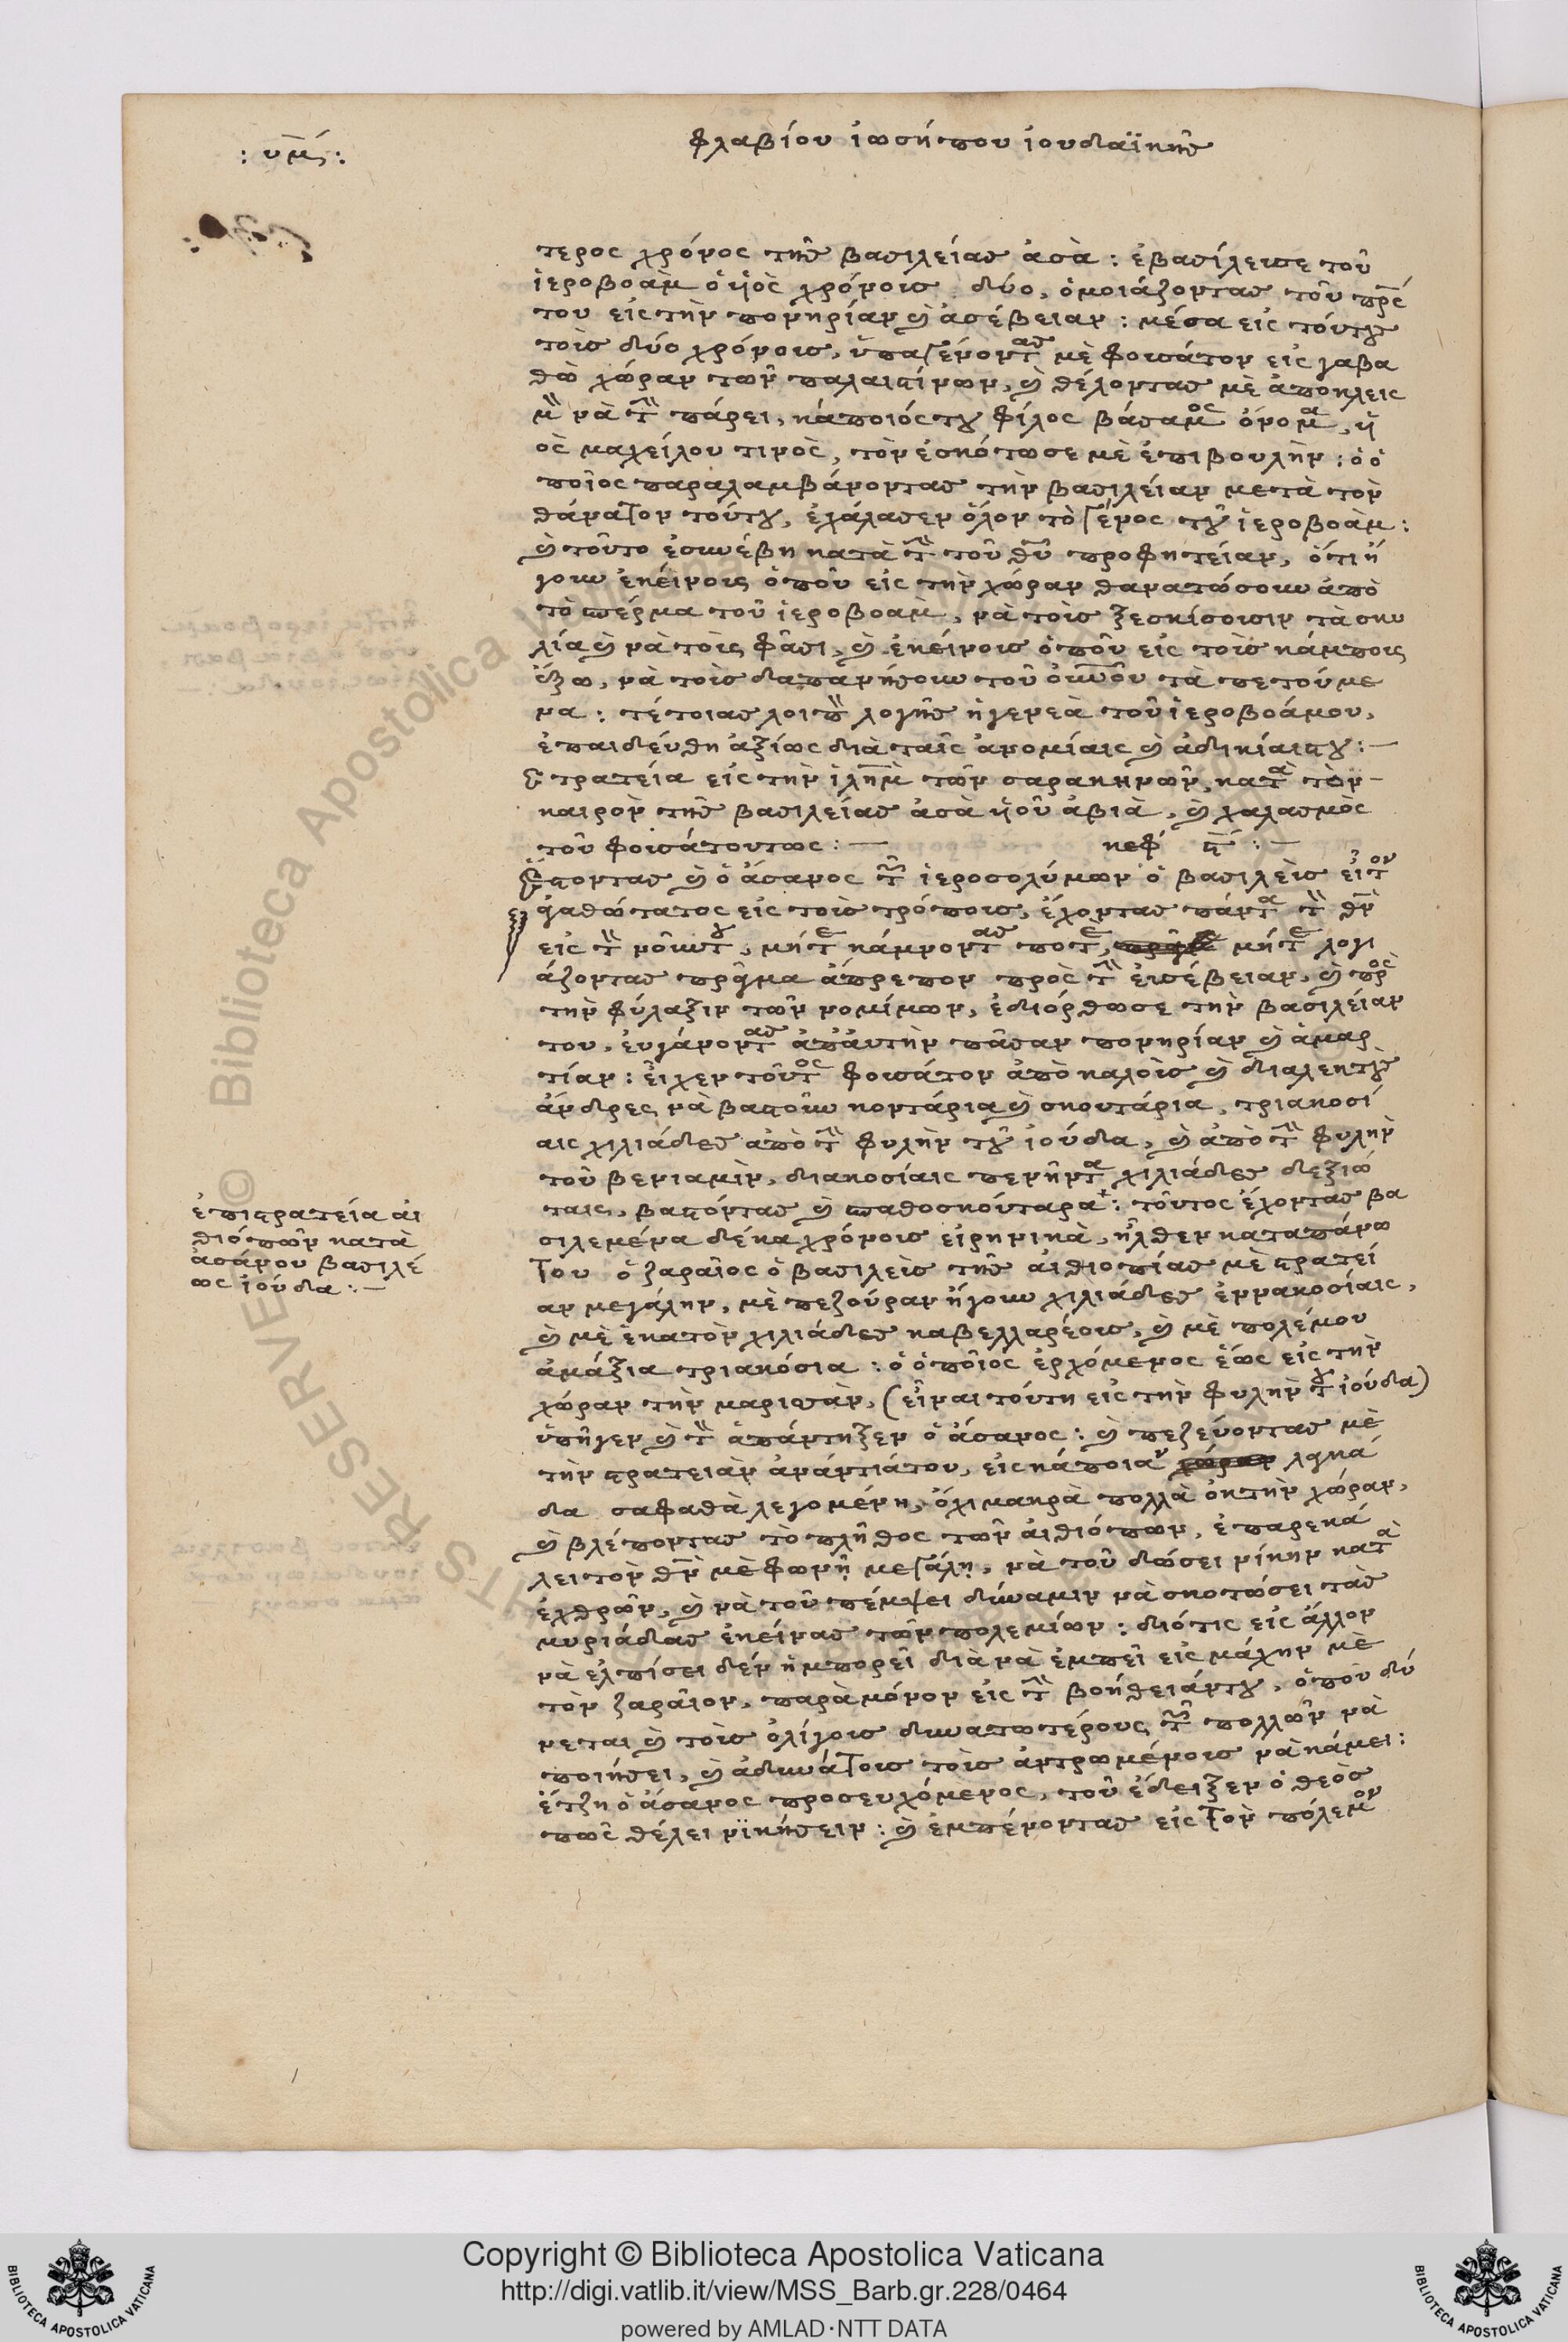 : υμς :
φλαβίου ἰωσήπου ἰουδαϊκῆς
τερος χρόνος τῆς βασιλείας ἀσὰ : ἐβασίλευσε τοῦ
ἱεροβοὰμ ὁ ὑἱὸς χρόνους δύο, ὁμοιάζοντας τοῦ πρ̅ς
του εἰς τὴν πονηρίαν καὶ ἀσέβειαν : μέσα εἰς τούτους
τοὺς δύο χρόνους, ὑπαγένοντας μὲ φουσάτον εἰς γαβα
θὼ χώραν τῶν παλαιστίνων, καὶ θέλοντας μὲ ἀποκλεις
μὸν νὰ τὴν πάρει, κάποιός του φίλος βάσαμος ὄνομα, ὑἱ
ὸς μαχείλου τινὸς, τὸν ἐσκότωσε μὲ ἐπιβουλὴν : ὁ ὁ
ποῖος παραλαμβάνοντας τὴν βασιλείαν μετὰ τὸν
θάνατον τούτου, ἐχάλασεν ὅλον τὸ γένος τοῦ ἱεροβοὰμ :
καὶ τοῦτο ἐσυνέβη κατὰ τὴν τοῦ θῦ προφητείαν, ὅτι ἤ
γουν ἐκείνους ὁποῦ εἰς τὴν χώραν θανατώσουν ἀπὸ
τὸ σπέρμα τοῦ ἱεροβοὰμ, νὰ τοὺς ξεσκίσουσιν τὰ σκυ
λία καὶ νὰ τοὺς φᾶσι, καὶ ἐκείνους ὁποῦ εἰς τοὺς κάμπους
ἔξω, νὰ τοὺς δαπανήσουν τοῦ οὐνοῦ τὰ πετούμε
να : τέτοιας λοιπὸν λογῆς ἡ γενεὰ τοῦ ἱεροβοάμου,
ἐπαιδεύθη ἀξίως διὰ ταῖς ἀνομίαις καὶ ἀδικίαις του : —
Στρατεία εἰς τὴν ἱλῆμ τῶν σαρακηνῶν, κατὰ τὸν
καιρὸν τῆς βασιλείας ἀσὰ ὑἱοῦ ἀβιὰ, καὶ χαλασμὸς
τοῦ φουσάτου τως : — κεφ ϛ : —
Ἔστοντας καὶ ὁ ἄσανος τῶν ἱεροσολύμων ὁ βασιλεὺς εἰς τὸν
ἀγαθώτατος εἰς τοὺς τρόπους, ἔχοντας πάντα τὸν θν
εἰς τὸν νοῦν του, μήτε κάμνοντας ποτὲ, μήτε λογι
άζοντας πρᾶγμα ἄπρεπον πρὸς τὴν εὐσέβειαν, καὶ πρὸς
τὴν φύλαξιν τῶν νομίμων, ἐδιόρθωσε τὴν βασιλείαν
του, εὐγάνοντας ἀπ' αὐτὴν πᾶσαν πονηρίαν καὶ ἁμαρ
τίαν : εἶχεν τοῦτος φουσάτον ἀπὸ καλοὺς καὶ διαλεκτοὺς
ἄνδρες νὰ βαστοῦν κοντάρια καὶ σκουτάρια, τριακοσί
αις χιλιάδες ἀπὸ τὴν φυλὴν τοῦ ἰούδα, καὶ ἀπὸ τὴν φυλὴν
τοῦ βενιαμὶν, διακοσίαις πενῆντα χιλιάδες δεξιώ
ταις, βαστόντας καὶ σπαθοσκούταρα : τοῦτος ἔχοντας βα
σιλεμένα δέκα χρόνους εἰρηνικὰ, ἦλθεν καταπάνω
του ὁ ζαραῖος ὁ βασιλεὺς τῆς αἰθιοπίας μὲ στρατεί
αν μεγάλην, μὲ πεζούραν ἤγουν χιλιάδες ἐννακοσίαις,
καὶ μὲ ἑκατὸν χιλιάδες καβελλαρέους, καὶ μὲ πολέμου
ἁμάξια τριακόσια : ὁ ὁποῖος ἐρχόμενος ἕως εἰς τὴν
χώραν τὴν μαρισὰν, (εἶναι τούτη εἰς τὴν φυλὴν τοῦ ἰούδα)
ὑπῆγεν καὶ τὸν ἀπάντηξεν ὁ ἄσανος : καὶ πεζεύοντας μὲ
τὴν στρατειὰν ἀνάντιά του, εἰς κάποιαν λαγκά
δα σαφαθὰ λεγομένη, ὄχι μακρὰ πολλὰ ὀκ τὴν χώραν,
καὶ βλέποντας τὸ πλῆθος τῶν αἰθιόπων, ἐπαρεκά
λει τὸν θν μὲ φωνῆ μεγάλη, νὰ τοῦ δώσει νίκην κατὰ
ἐχθρῶν, καὶ νὰ τοῦ πέμψει δύναμιν νὰ σκοτώσει τὰς
μυριάδας ἐκείνας τῶν πολεμίων : διότις εἰς ἄλλον
νὰ ἐλπίσει δὲν ἠμπορεῖ διὰ νὰ ἐμπεῖ εἰς μάχην μὲ
τὸν ζαραῖον, παρὰ μόνον εἰς τὴν βοήθειάν του, ὁποῦ δύ
νεται καὶ τοὺς ὀλίγους δυνατωτέρους τῶν πολλῶν νὰ
ποιήσει, καὶ ἀδυνάτους τοὺς ἀντρωμένους νὰ κάμει :
ἔτζη ὁ ἄσανος προσευχόμενος, τοῦ ἔδειξεν ὁ θεὸς
πῶς θέλει νικήσειν : καὶ ἐμπένοντας εἰς τὸν πόλεμον
ἐπιστρατεία αἰ
θιόπων κατὰ
ἀσάνου βασιλέ
ως ἰούδα : —
Copyright © Biblioteca Apostolica Vaticana
http://digi.vatlib.it/view/MSS_Barb.gr.228/0464
powered by AMLAD·NTT DATA
BIBLIOTECA APOSTOLICA VATICANA
BIBLIOTECA APOSTOLICA VATICANA